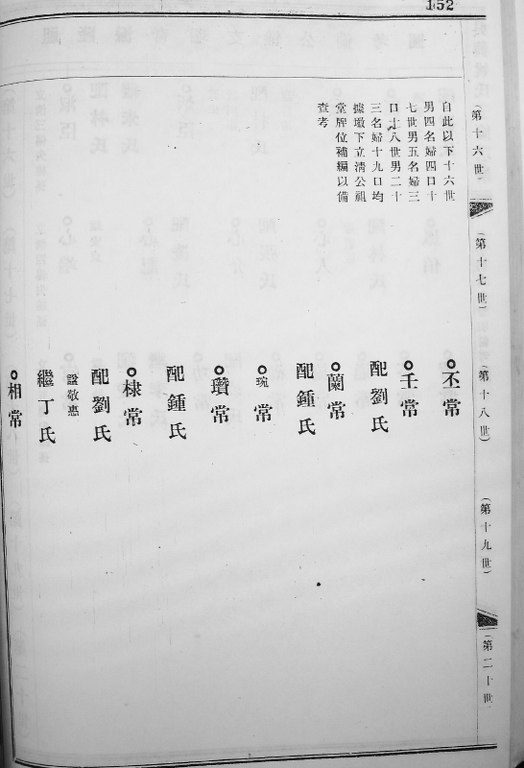 152
(第十六世)
(第十七世)
(第十八世)
(第十九世)
(第二十世)
自此以下十六世
男四名婦四口十
七世男五名婦三
口十八世男二十
三名婦十九口均
據墩下立淸公祖
堂牌位補編以備
查考
丕常
壬常
配劉氏
蘭常
配鍾氏
琬常
瓚常
配鍾氏
棣常
配劉氏
諡敬惠
繼丁氏
相常